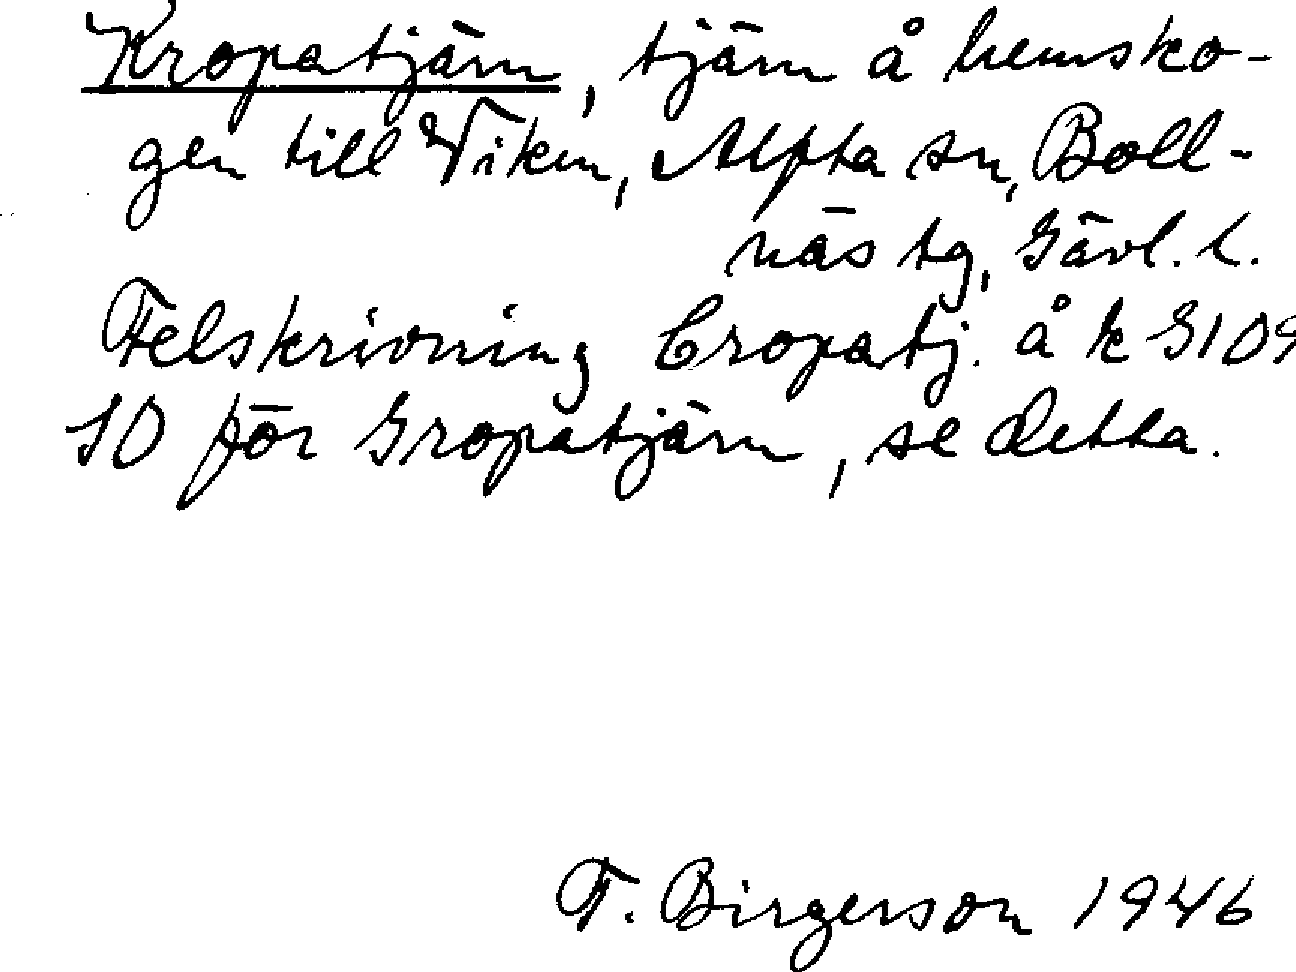 Kropatjärn, tjärn å hemsko-
gen till Viken, Alfta sn, Boll-
näs tg, Gävl. l.
Felskrivning Cropatj. å k G109
SO för Gropatjärn, se detta.
F. Birgerson 1946